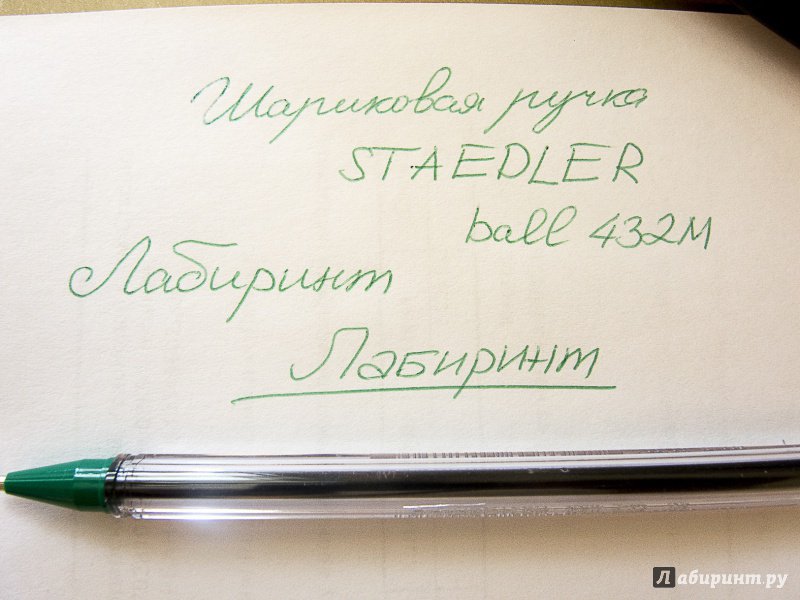 Шариковая ручка
STAEDLER
ball 432M
Лабиринт
Лабиринт
Лабиринт.ру